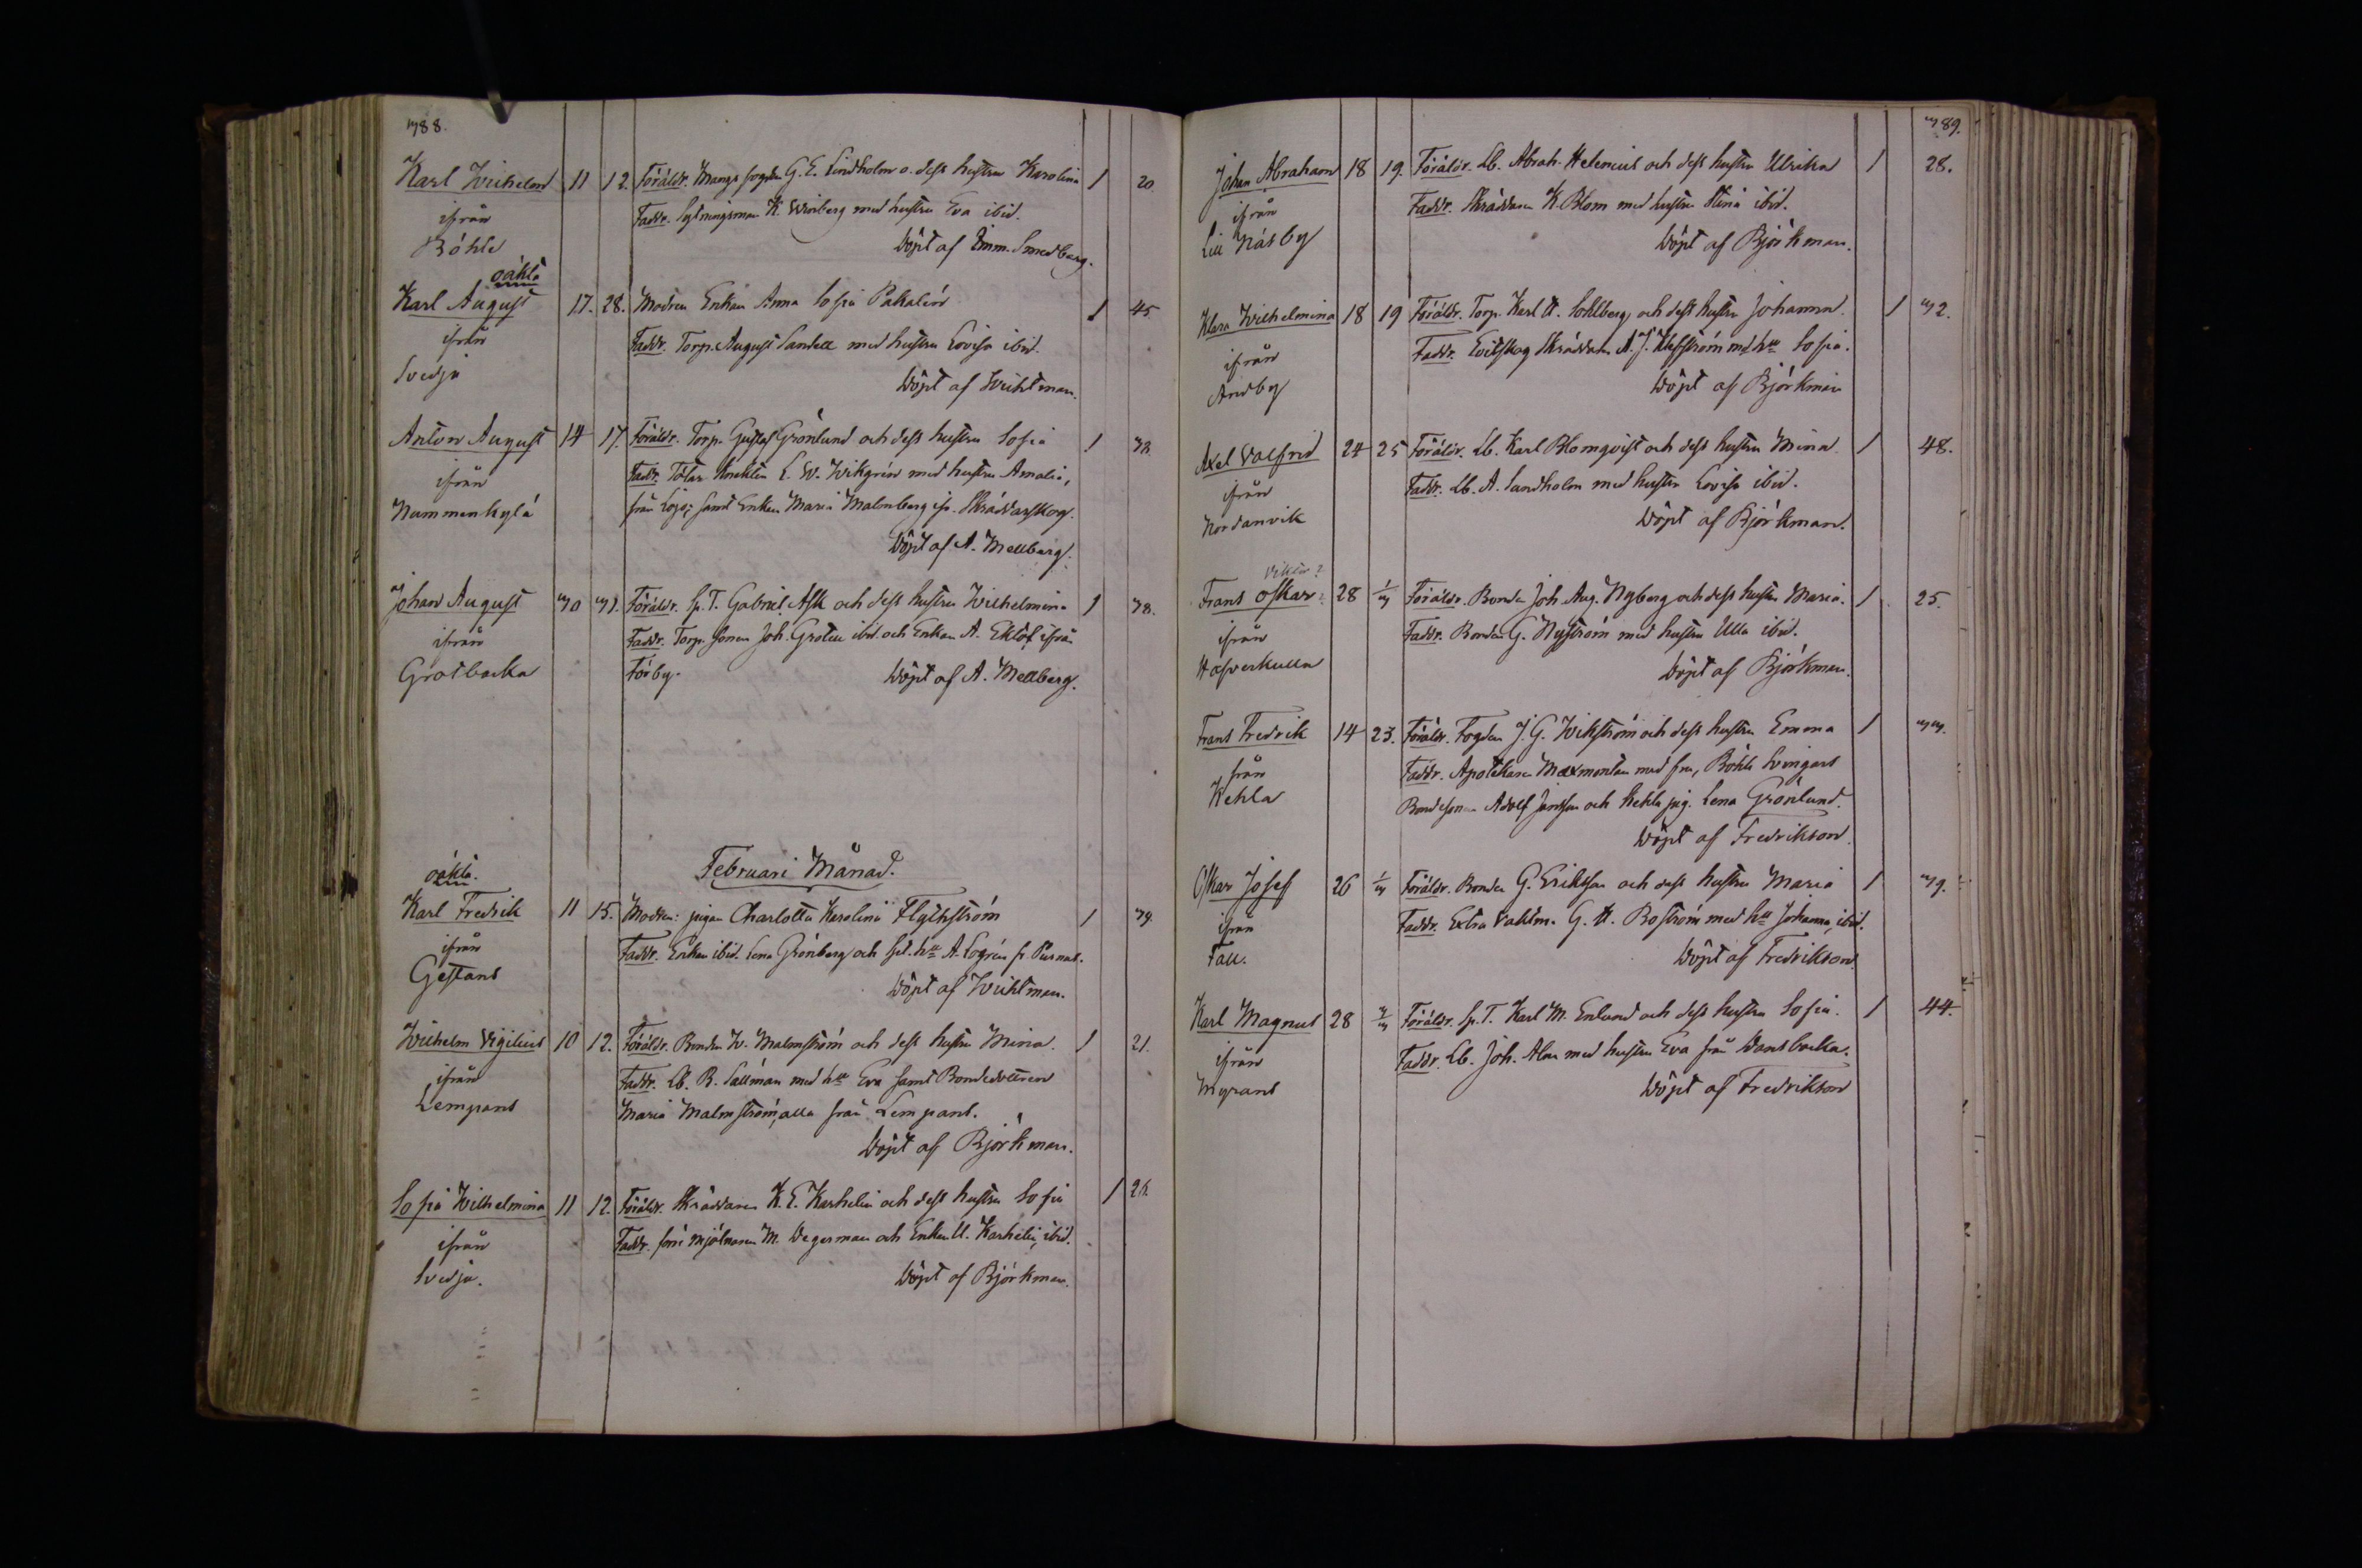 388.
Karl Wilhelm 11 12. Föräldr. Mangs fogden G. E. Lindholm o. dess hustru Karolina 1 20.
ifrån Faddr. Sytningsman K. Winberg med hustru Eva ibid.
Böhle Döpt af Imm. Smedberg.
oäkta
Karl August 17. 28. Modren Enkan Anna Sofia Pakalén 1 45
ifrån Faddr. Torp. August Sandell med hustru Lovisa ibid.
Svedja Döpt af Wichtman.
Anton August 14 17. Föräldr. Torp. Gustaf Grönlund och dess hustru Sofia 1
ifrån Faddr. L. W. Wikgrén med hustru Amalia,
Nummenkylä från Lojo; samt Enkan Maria Malmberg ifr. Skräddarskog.
Döpt af A. Mellberg.
Johan August 30 31. Föräldr. Sp. T. Gabriel Ask och dess hustru Wilhelmina 1 38.
ifrån Faddr. Torp. sonen Joh. Grotell ibid. och Enkan A. Eklöf ifrån
Grotbacka Torby. Döpt af A. Mellberg.
Februari Månad.
oäkta.
Karl Fredrik 11 15. Modren: pigan Charlotta Karolina Flythström 1 39.
ifrån Faddr. Enkan ibid. Lena Grönberg och A. Logrén fr. Purnas.
Gestans Döpt af Wichtman.
Wilhelm Vigilius 10 12. Föräldr. Bonden W. Malmström och dess hustru Mina. 1 21.
ifrån Faddr. Lb. B. Sallman med hu Eva samt Bondedottren
Lempans Maria Malmström, alla från Lempans.
Döpt af Björkman.
Sofia Wilhelmina 11 12. Föräldr. Skräddaren K. E. Karhelin och dess hustru Sofia 1
ifrån Faddr. mjölnaren M. Degerman och Enkan U. Karhelin, ibid.
Svedja. Döpt af Björkman.
389.
Johan Abraham 18 19. Föräldr. Lb. Abrah. Helenius och dess hustru Ulrika 1 28.
ifrån Faddr. Skräddaren K. Blom med hustru Stina ibid.
Lill Näsby Döpt af Björkman.
Klara Wilhelmina 18 19 Föräldr. Torp. Karl A. Sohlberg och dess hustru Johanna. 1 32.
ifrån Faddr. Evitskog Skräddaren A. J. Klefström med hu Sofia.
Andby Döpt af Björkman
Axel Valfrid 24 25 Föräldr. Lb. Karl Blomqvist och dess hustru Mina 1 48.
ifrån Faddr. Lb. A. Sandholm med hustru Lovisa ibid.
Nordanvik Döpt af Björkman.
Viktor?
Frans Oskar 28 1/3 Föräldr. Bonden Joh. Aug. Nyberg och dess hustru Maria. 1 25.
ifrån Faddr. Bonden G. Nyström med hustru Ulla ibid.
Hafverkulla Döpt af Björkman.
Frans Fredrik 14 23. Föräldr. Fogden J. G. Wikström och dess hustru Emma 1 33.
från Faddr. Apotekaren Maxmontan med fru, Böhle Svingars
Kehla Bondesonen Adolf Jansson och Kehla pig. Lena Grönlund.
Döpt af Fredrikson.
Oskar Josef 26 1/3 Föräldr. Bonden G. Eriksson och dess hustru Maria 1 39.
ifrån Faddr. Extra Vaktm. G. A. Boström med hu Johanna, ibid.
Fall. Döpt af Fredrikson
Karl Magnus 28 3/3 Föräldr. Sp. T. Karl M. Enlund och dess hustru Sofia. 1 44.
ifrån Faddr. Lb. Joh. Alm med hustru Eva från Dansbacka.
Myrans Döpt af Fredrikson